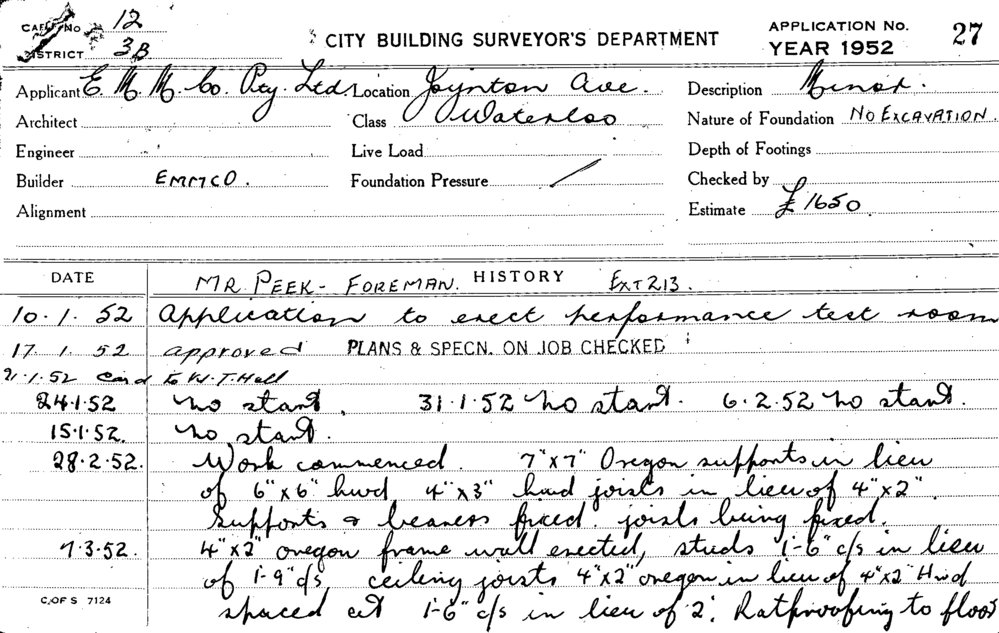 CARD No 12
DISTRICT 3B
CITY BUILDING SURVEYOR'S DEPARTMENT
APPLICATION No. 27
YEAR 1952
Applicant E. M. M. Co. Pty. Ltd. Location Joynton Ave. Description Minor.
Architect Class Waterloo Nature of Foundation NO EXCAVATION.
Engineer Live Load Depth of Footings
Builder EMMCO. Foundation Pressure Checked by
Alignment Estimate £1650.
DATE HISTORY
MR. PEEK - FOREMAN. EXT 213.
10.1.52 Application to erect performance test room
17.1.52 approved PLANS & SPECN. ON JOB CHECKED
21.1.52 Card to W.T. Hall
24.1.52 no start. 31.1.52 no start. 6.2.52 no start.
15.1.52. no start.
28.2.52. Work commenced. 7"x7" Oregon supports in lieu
of 6"x6" hwd 4"x3" hwd joists in lieu of 4"x2".
supports & bearers fixed. joists being fixed.
7.3.52. 4"x2" oregon frame wall erected, studs 1'-6" c/s in lieu
of 1'-9" c/s, ceiling joists 4"x2" oregon in lieu of 4"x2" Hwd
spaced at 1'-6" c/s in lieu of 2'. Ratproofing to floor
C. OF S 7124